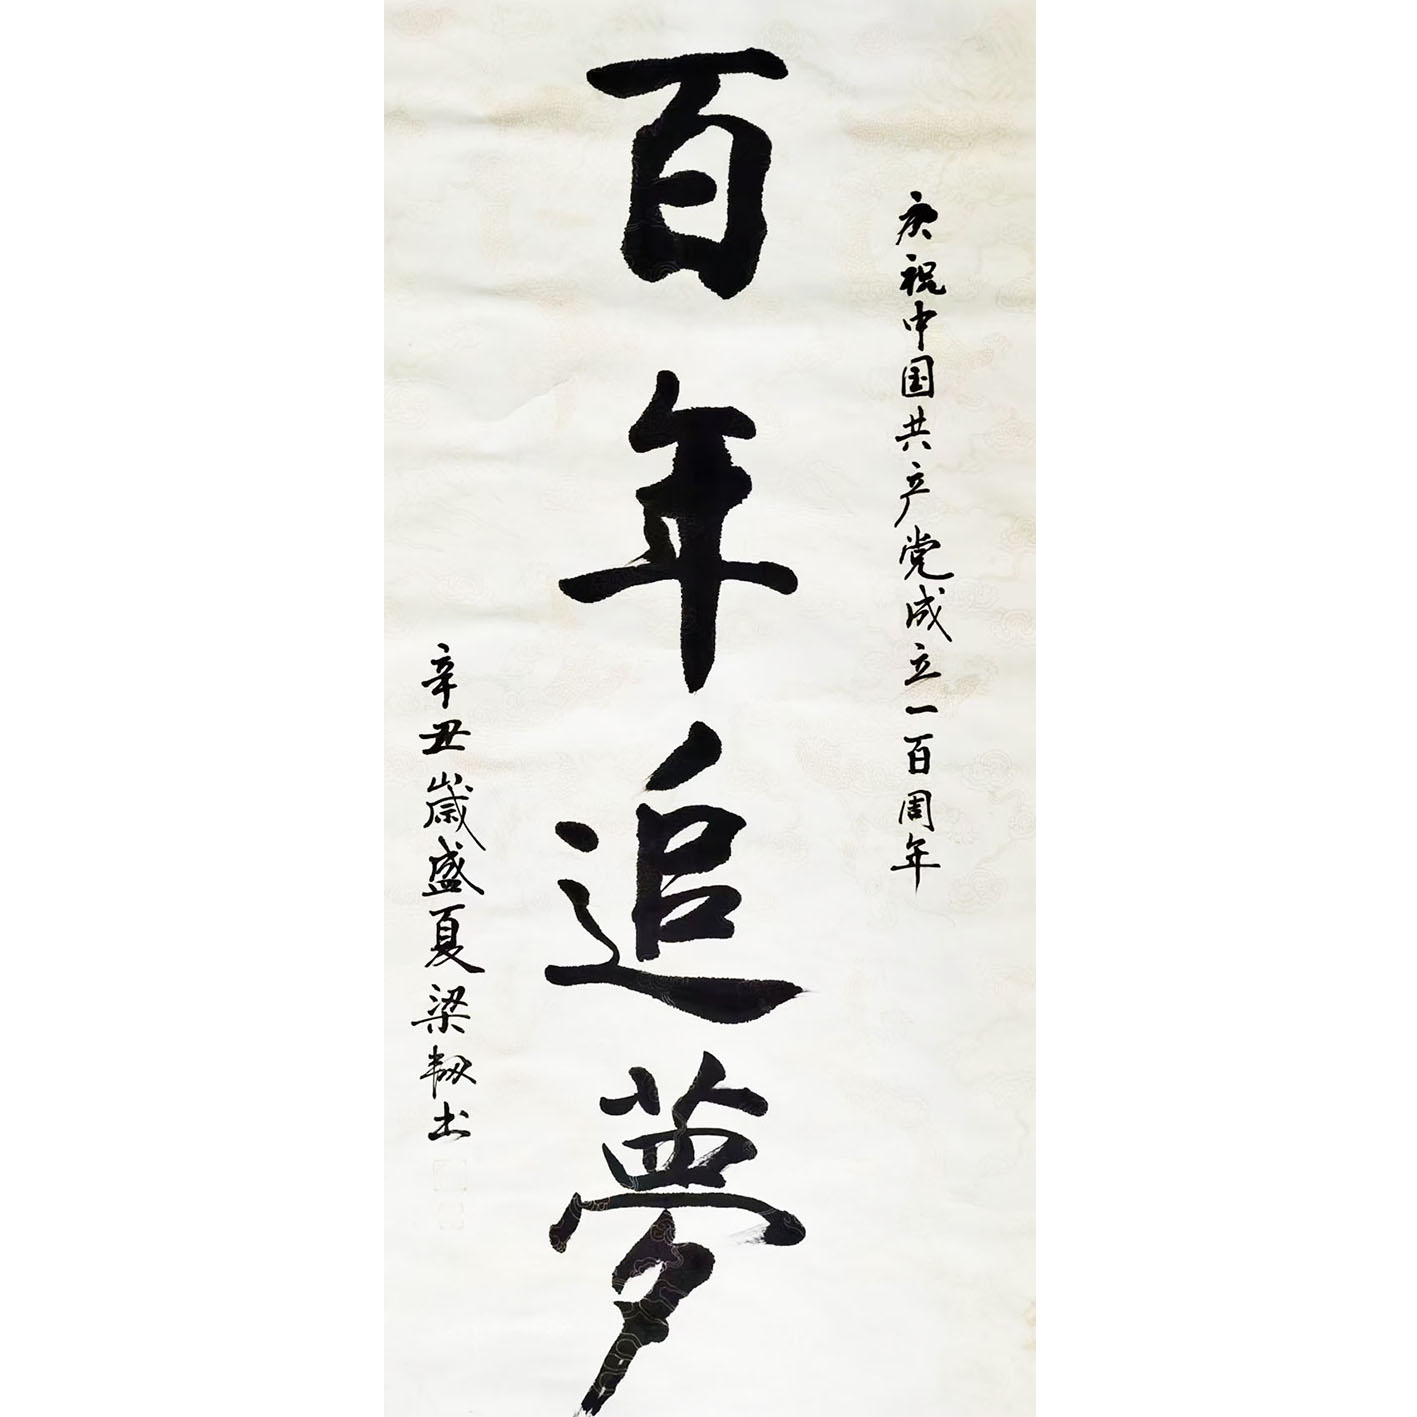 庆祝中国共产党成立一百周年
百年追夢
辛丑嵗盛夏梁韧书